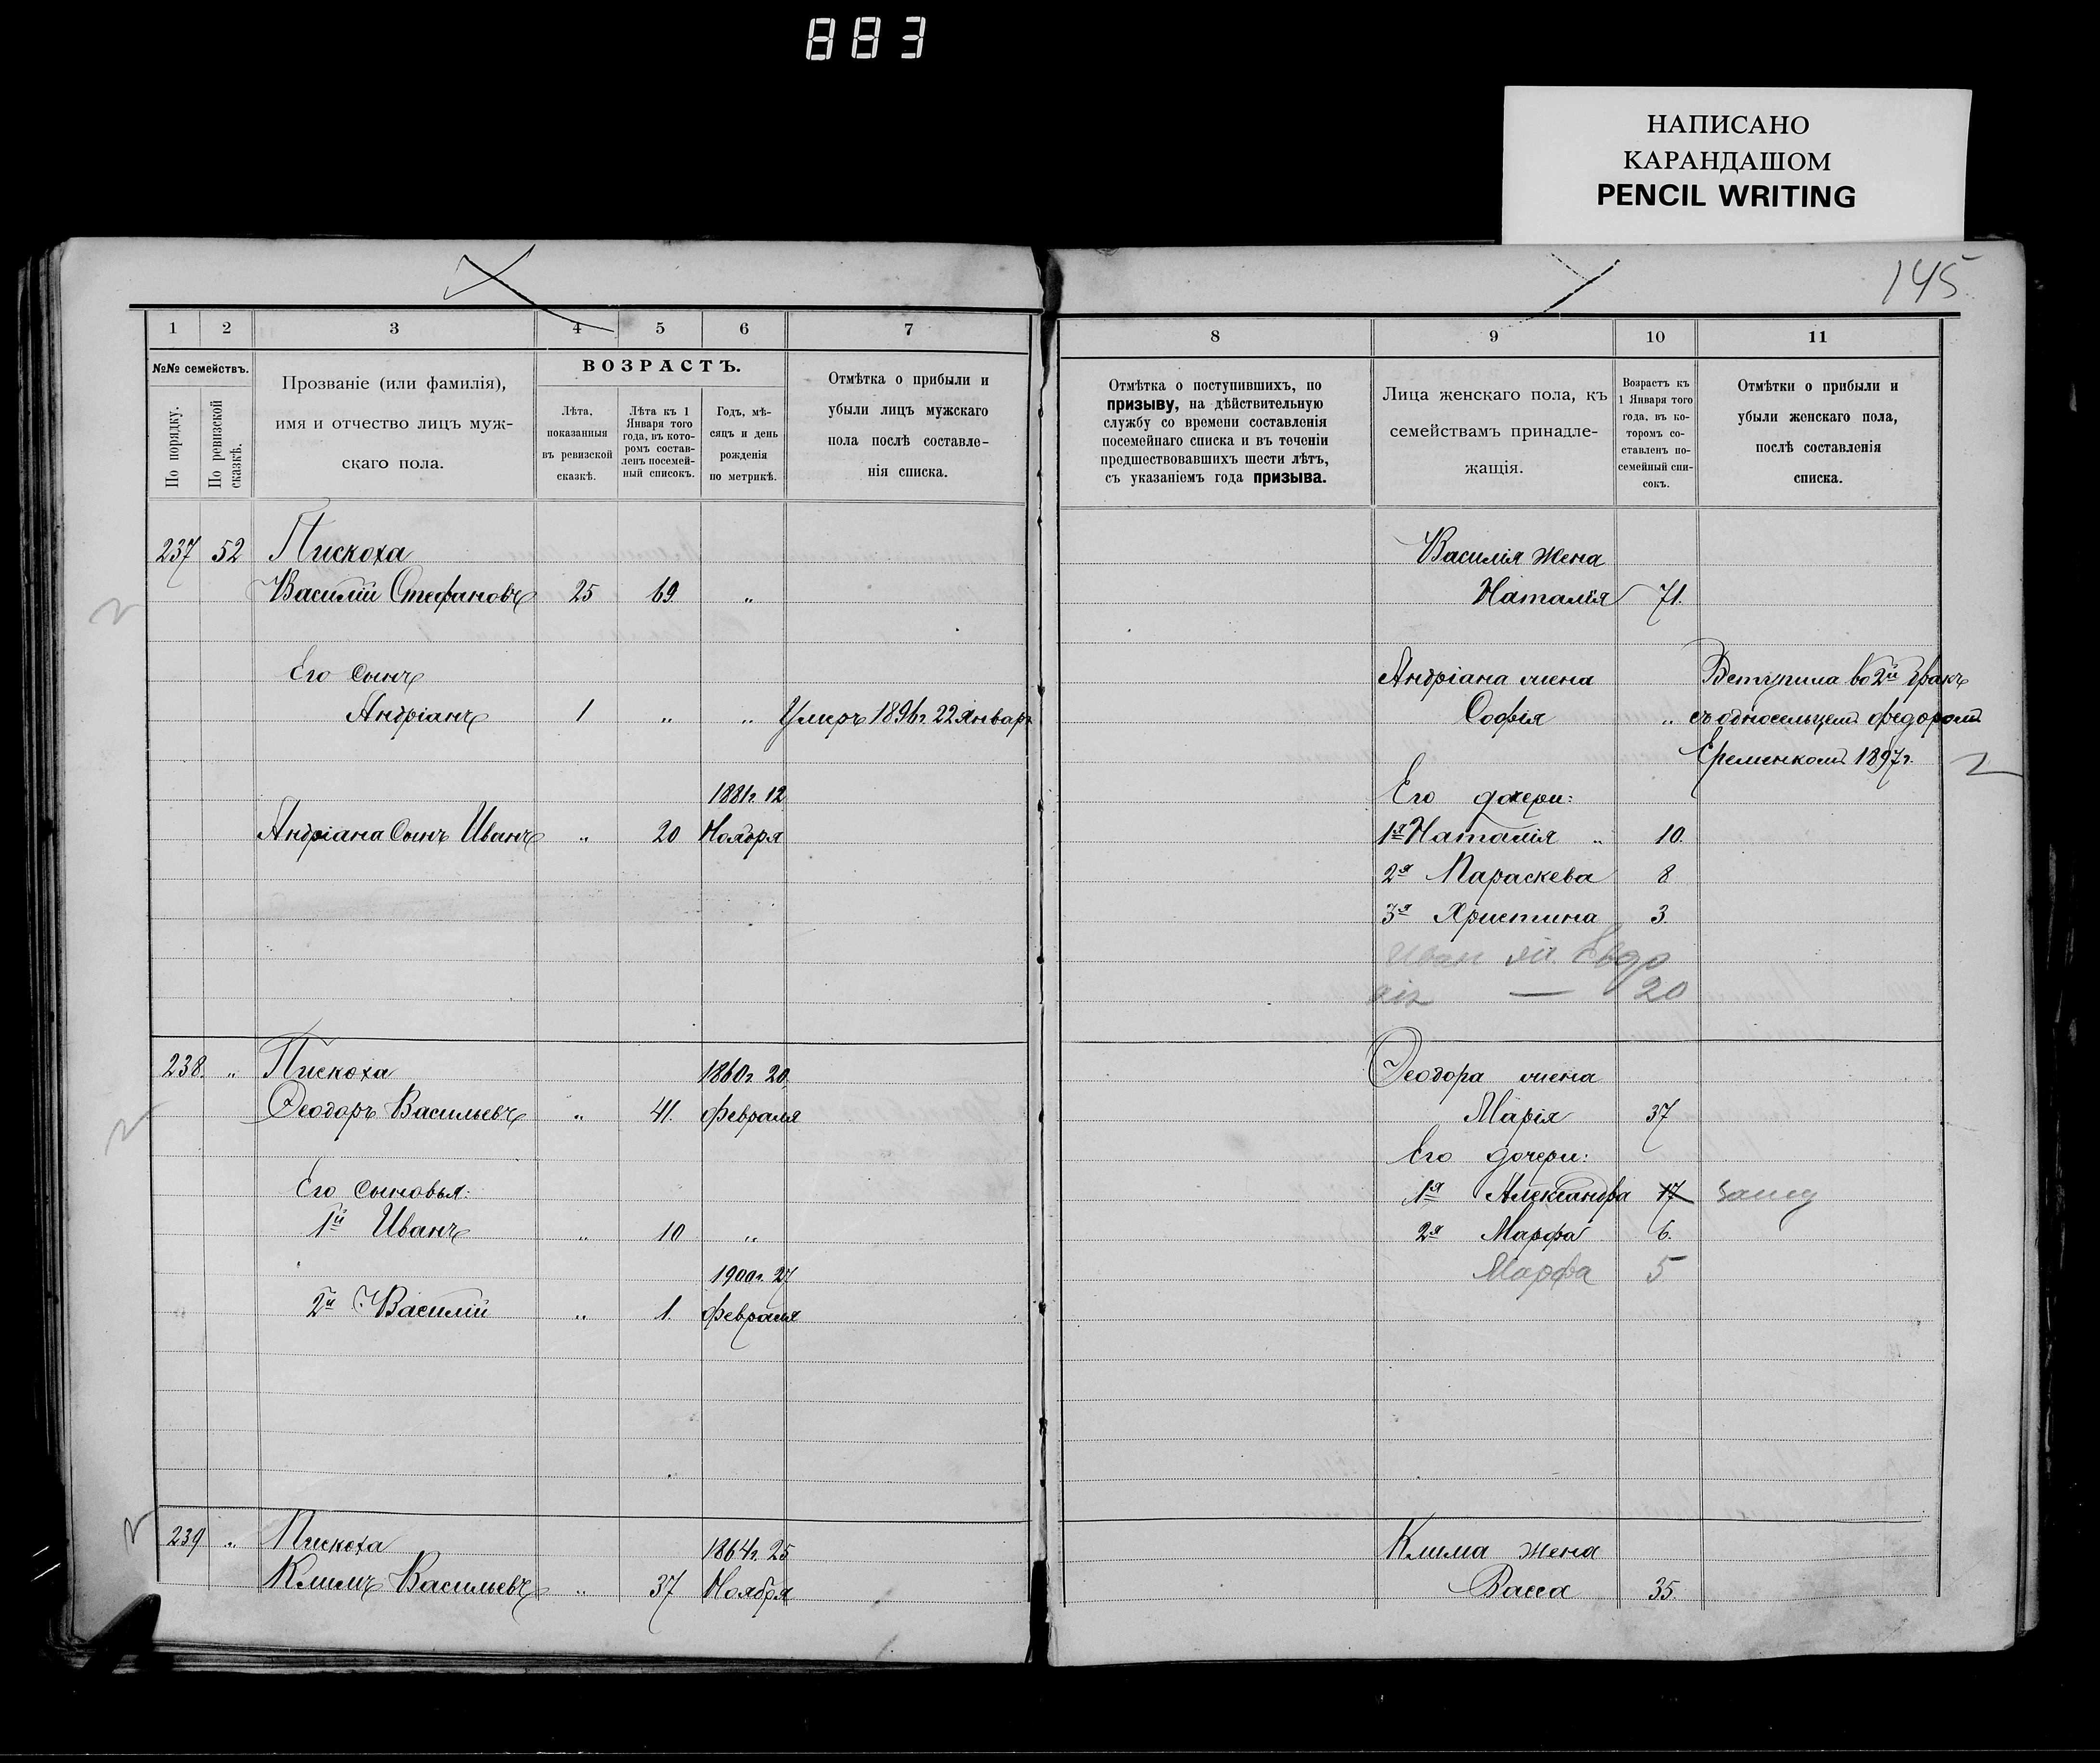 883
НАПИСАНО
КАРАНДАШОМ
PENCIL WRITING
145
1 2 3 4 5 6 7
№№ семействъ.
По порядку.
По ревизской сказкѣ.
Прозваніе (или фамилія),
имя и отчество лицъ муж-
скаго пола.
ВОЗРАСТЪ.
Лѣта,
показанныя
въ ревизской
сказкѣ.
Лѣта къ 1
Января того
года, въ кото-
ромъ состав-
ленъ посемей-
ный списокъ.
Годъ, мѣ-
сяцъ и день
рожденія
по метрикѣ.
Отмѣтка о прибыли и
убыли лицъ мужскаго
пола послѣ составле-
нія списка.
237 52 Пискоха
Василій Стефановъ 25 69. „
Его сынъ
Андріанъ 1 „ „ Умеръ 1896г. 22 Январ
1881г. 12
Андріана Сынъ Иванъ „ 20 Ноября
238. „ Пискоха 1860г. 20.
Ѳеодоръ Васильевъ „ 41. Февраля
Его сыновья:
1й Иванъ „ 10 „
1900г. 27
2й Василій „ 1. Февраля
239 „ Пискоха 1864г. 25
Климъ Васильевъ „ 37 Ноября
8 9 10 11
Отмѣтка о поступившихъ, по
призыву, на дѣйствительную
службу со времени составленія
посемейнаго списка и въ теченіи
предшествовавшихъ шести лѣтъ,
съ указаніемъ года призыва.
Лица женскаго пола, къ
семействамъ принадле-
жащія.
Возрастъ къ
1 Января того
года, въ ко-
торомъ со-
ставленъ по-
семейный спи-
сокъ.
Отмѣтки о прибыли и
убыли женскаго пола,
послѣ составленія
списка.
Василія жена
Наталія 71.
Андріана жена Вступила во 2й бракъ
Софія „ съ односельцемъ Федоромъ
Еременкомъ 1897г.
Его дочери:
1я Наталія „ 10.
2я Параскева 8
3я Христина 3.
Иван Евдо
кія — 20
Ѳеодора жена
Марія 37
Его дочери:
1я Александра 17 замуж
2я Марфа 6.
Марфа 5
Клима жена
Васса 35.